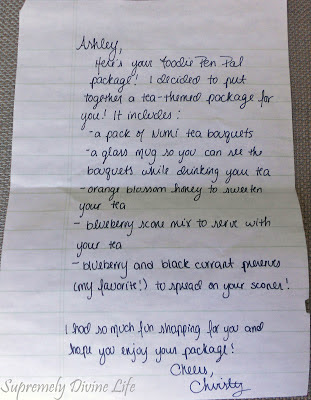 Ashley,
Here's your Foodie Pen Pal
package! I decided to put
together a tea-themed package for
you! It includes:
-a pack of Numi tea bouquets
-a glass mug so you can see the
bouquets while drinking your tea
-orange blossom honey to sweeten
your tea
- blueberry scone mix to serve with
your tea
- blueberry and black currant preserves
(my favorite!) to spread on your scones!
I had so much fun shopping for you and
hope you enjoy your package!
Cheers,
Christy
Supremely Divine Life